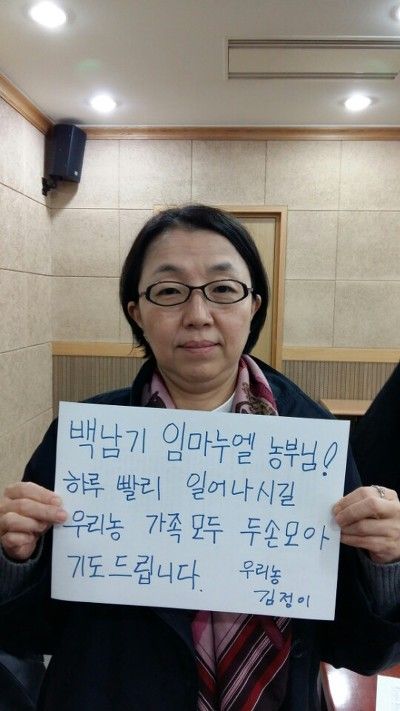 백남기 임마누엘 농부님!
하루 빨리 일어나시길
우리농 가족 모두 두손모아
기도드립니다. 우리농
김정이